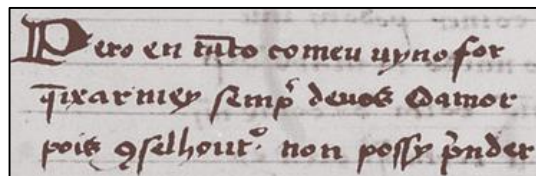 Pero en tãto comeu uyno for
q̃ixarmey semp̃ deuos Damor
pois ꝯselhoutº. non possy p̃nder